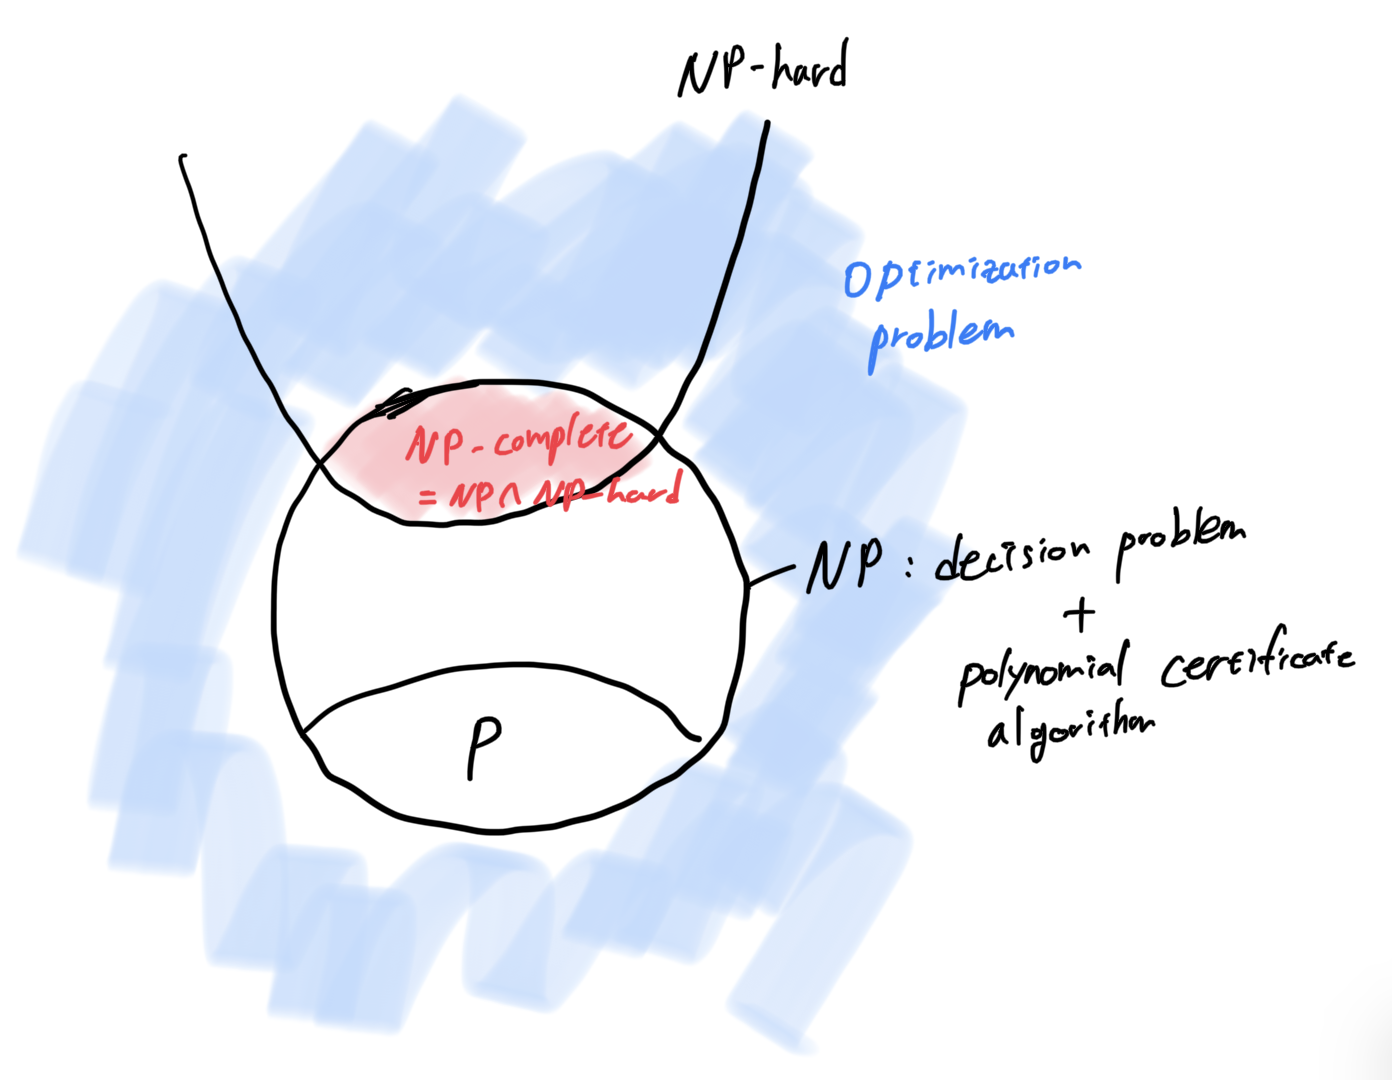 NP-hard
Optimization
problem
NP-complete
= NP ∩ NP-hard
NP : decision problem
+
polynomial certificate
algorithm
P